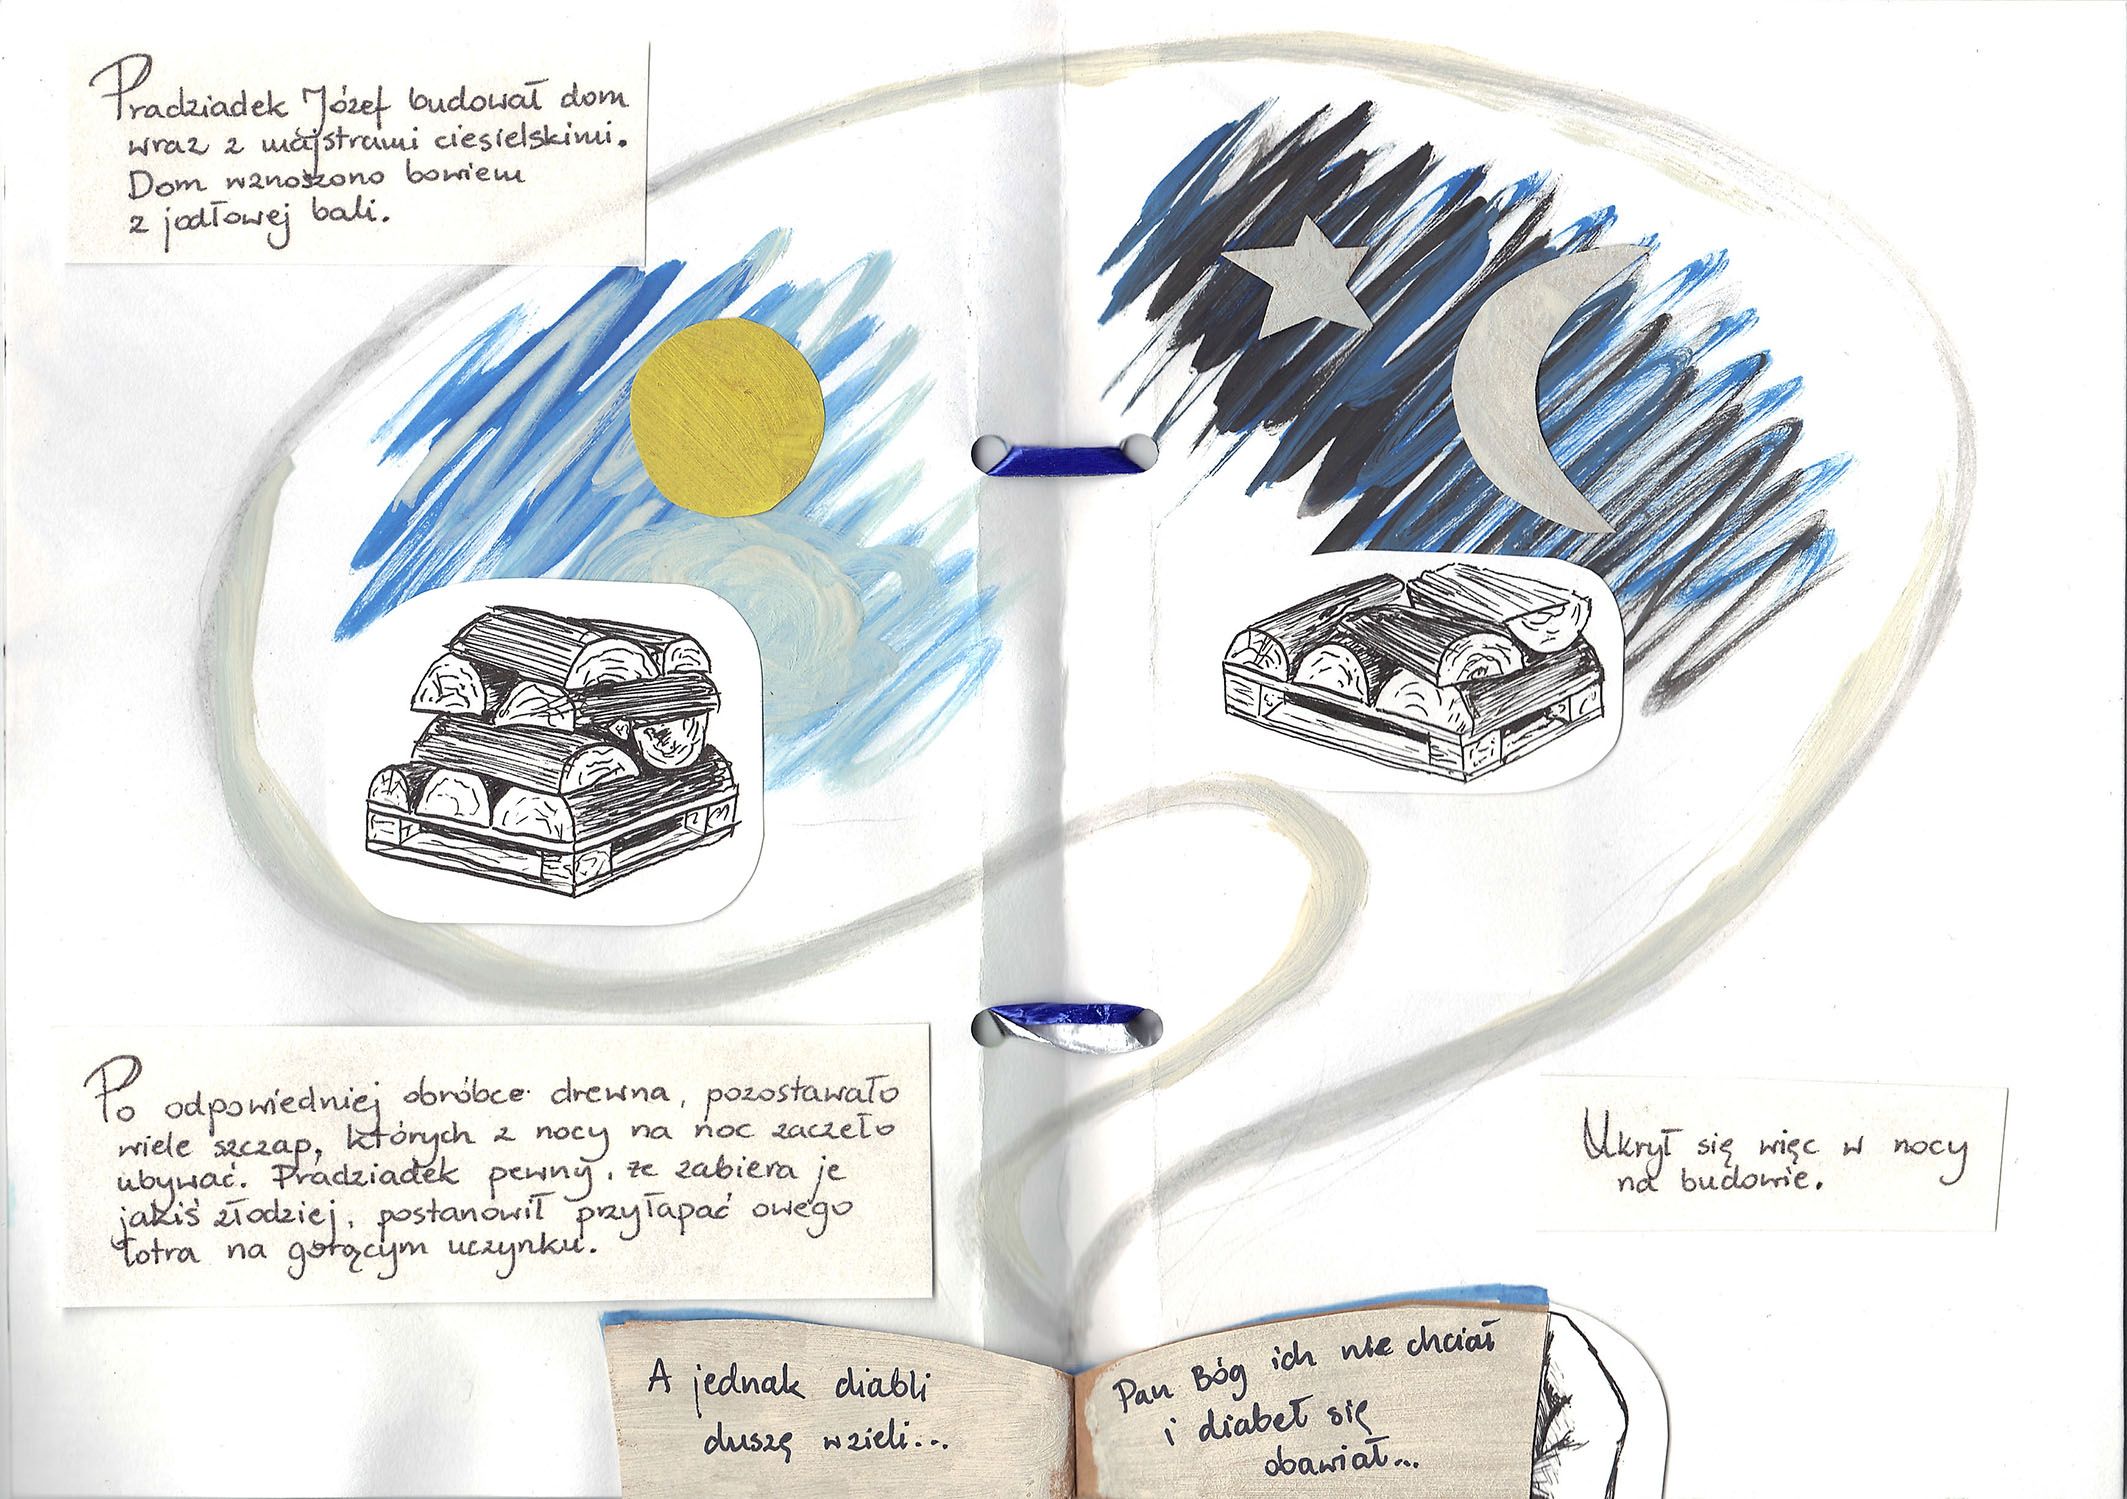 Pradziadek Józef budował dom
wraz z majstrami ciesielskimi.
Dom wznoszono bowiem
z jodłowej bali.
Po odpowiedniej obróbce drewna, pozostawało
wiele szczap, których z nocy na noc zaczeło
ubywać. Pradziadek pewny, że zabiera je
jakiś złodziej, postanowił przyłapać owego
łotra na gorącym uczynku.
Ukrył się więc w nocy
na budowie.
A jednak diabli
duszę wzieli...
Pan Bóg ich nie chciał
i diabeł się
obawiał...